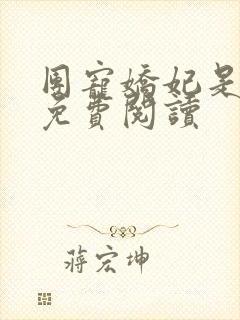 團寵嬌妃是
免費閱讀
蔣宏坤